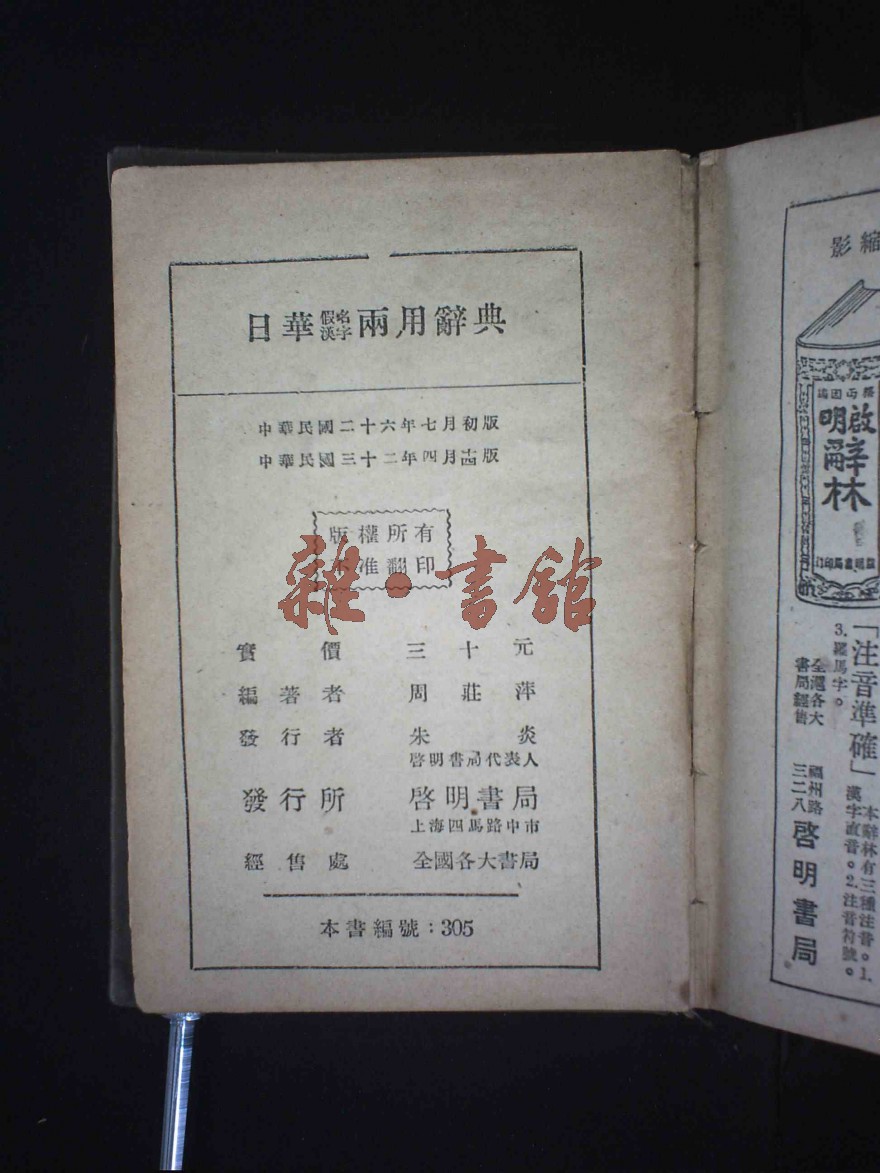 日華假名漢字兩用辭典
中華民國二十六年七月初版
中華民國三十二年四月十四版
版權所有
不准翻印
雜·書館
實價 三十元
編著者 周莊萍
發行者 朱炎
啓明書局代表人
發行所 啓明書局
上海四馬路中市
經售處 全國各大書局
本書編號：305
縮影
啟明辭林
「注音準確」
本辭林有三種注音。1.
漢字直音。2.注音符號。
3.羅馬字。
全遝各大
書局經售
福州路
三二八
啓明書局